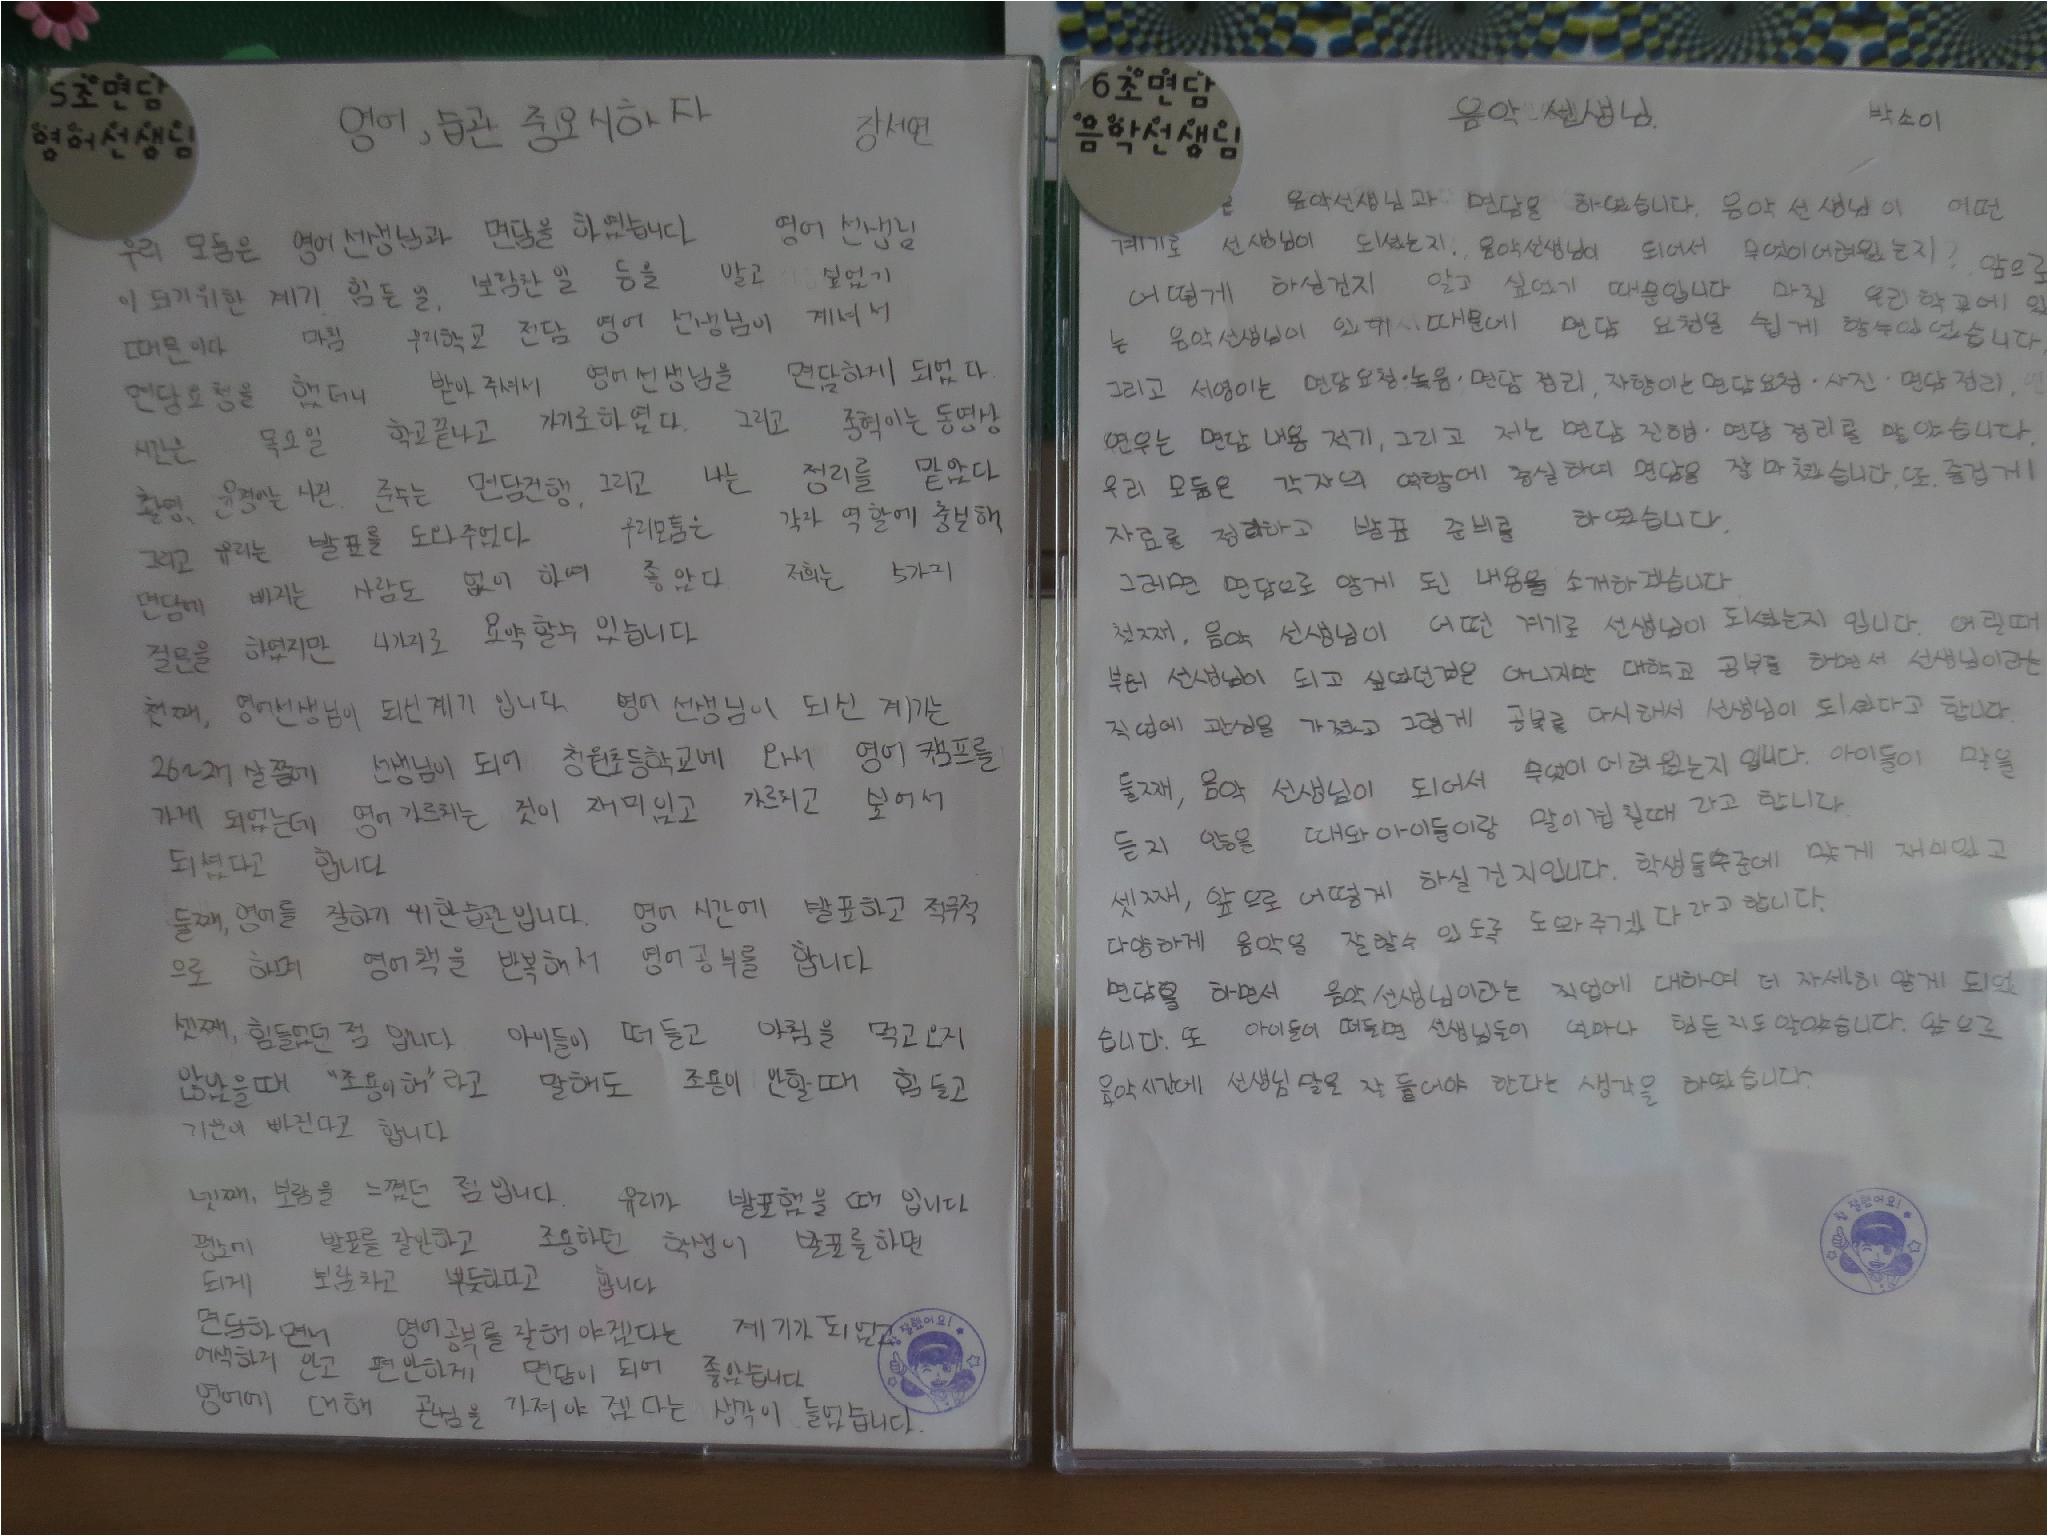 5조면담
영어선생님
영어, 습관 중요시하자
장서연
우리 모둠은 영어선생님과 면담을 하였습니다 영어 선생님
이 되기위한 계기, 힘든 일, 보람찬 일 등을 알고 싶었기
때문이다 마침 우리학교 전담 영어 선생님이 계셔서
면담요청을 했더니 받아 주셔서 영어선생님을 면담하게 되었다.
시간은 목요일 학교끝나고 가기로하였다. 그리고 종혁이는 동영상
촬영, 윤정이는 사진, 준수는 면담진행, 그리고 나는 정리를 맡았다
그리고 유리는 발표를 도와주었다 우리모둠은 각자 역할에 충실해
면담에 빠지는 사람도 없이 하여 좋았다 저희는 5가지
질문을 하였지만 4가지로 요약할수 있습니다
첫째, 영어선생님이 되신계기 입니다 영어 선생님이 되신 계기는
26~27살쯤에 선생님이 되어 청원초등학교에 와서 영어 캠프를
가게 되었는데 영어가르치는 것이 재미있고 가르치고 싶어서
되셨다고 합니다
둘째, 영어를 잘하기 위한습관입니다. 영어 시간에 발표하고 적극적
으로 하며 영어책을 반복해서 영어공부를 합니다
셋째, 힘들었던 점 입니다 아이들이 떠들고 아침을 먹고오지
않았을때 "조용이해"라고 말해도 조용이 안할때 힘들고
기운이 빠진다고 합니다
넷째, 보람을 느꼈던 점입니다. 유리가 발표했을 때 입니다
평소에 발표를 잘안하고 조용하던 학생이 발표를하면
되게 보람차고 뿌듯하다고 합니다
면담하면서 영어공부를 잘해야겠다는 계기가 되었고
어색하지 안고 편안하게 면담이 되어 좋았습니다
영어에 대해 관심을 가져야 겠다는 생각이 들었습니다.
참 잘했어요!
6조면담
음악선생님
음악 선생님
박소이
음악선생님과 면담을 하였습니다. 음악 선생님이 어떤
계기로 선생님이 되셨는지, 음악선생님이 되어서 무엇이어려웠는지? 앞으로
어떻게 하실건지 알고 싶었기 때문입니다 마침 우리학교에 있
는 음악선생님이 있기 때문에 면담 요청을 쉽게 할수있었습니다.
그리고 서영이는 면담요청·녹음·면담 정리, 자향이는면담요청·사진·면담정리,
연우는 면담 내용 적기, 그리고 저는 면담 진행·면담 정리를 맡았습니다.
우리 모둠은 각자의 역할에 충실하여 면담을 잘 마쳤습니다. 또, 즐겁게
자료를 정리하고 발표 준비를 하였습니다.
그러면 면담으로 알게 된 내용을 소개하겠습니다
첫째, 음악 선생님이 어떤 계기로 선생님이 되셨는지 입니다. 어릴때
부터 선생님이 되고 싶었던것은 아니지만 대학교 공부를 하면서 선생님이라는
직업에 관심을 가졌고 그렇게 공부를 다시해서 선생님이 되셨다고 합니다.
둘째, 음악 선생님이 되어서 무엇이 어려웠는지 입니다. 아이들이 말을
듣지 않을 때와아이들이랑 말이겹칠때 라고 합니다.
셋째, 앞으로 어떻게 하실 건지입니다. 학생들수준에 맞게 재미있고
다양하게 음악을 잘할수 있도록 도와주겠다라고합니다.
면담을 하면서 음악선생님이라는 직업에 대하여 더 자세히 알게 되었
습니다. 또 아이들이 떠들면 선생님들이 얼마나 힘든지도 알았습니다. 앞으로
음악시간에 선생님 말을 잘 들어야 한다는 생각을 하였습니다.
참 잘했어요!